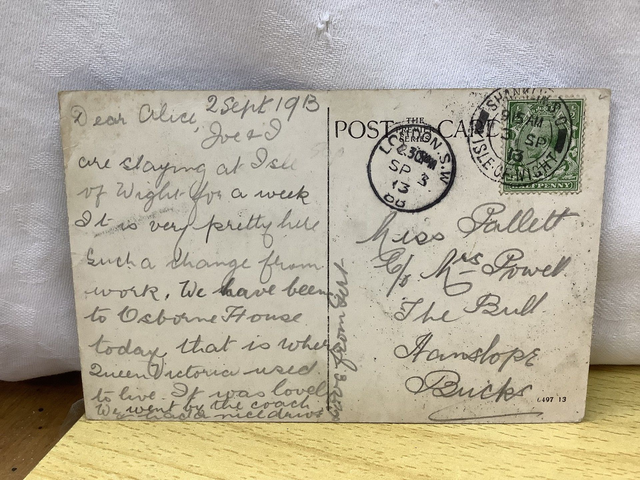 Dear Alice 2 Sept 1913
Joe & I
are staying at Isle
of Wight for a week
It is very pretty here
Such a change from
work. We have been
to Osborne House
today, that is where
Queen Victoria used
to live. It was lovely
We went by the coach
had a nice drive
love from Gert
POST CARD
THE
SERIES
LONDON.S.W
2.30PM
SP 3
13
SHANKLIN
SP
13
ISLE OF WIGHT
PENNY
Miss Pallett
C/o Mrs Powell
The Bull
Hanslope
Bucks
6497 13